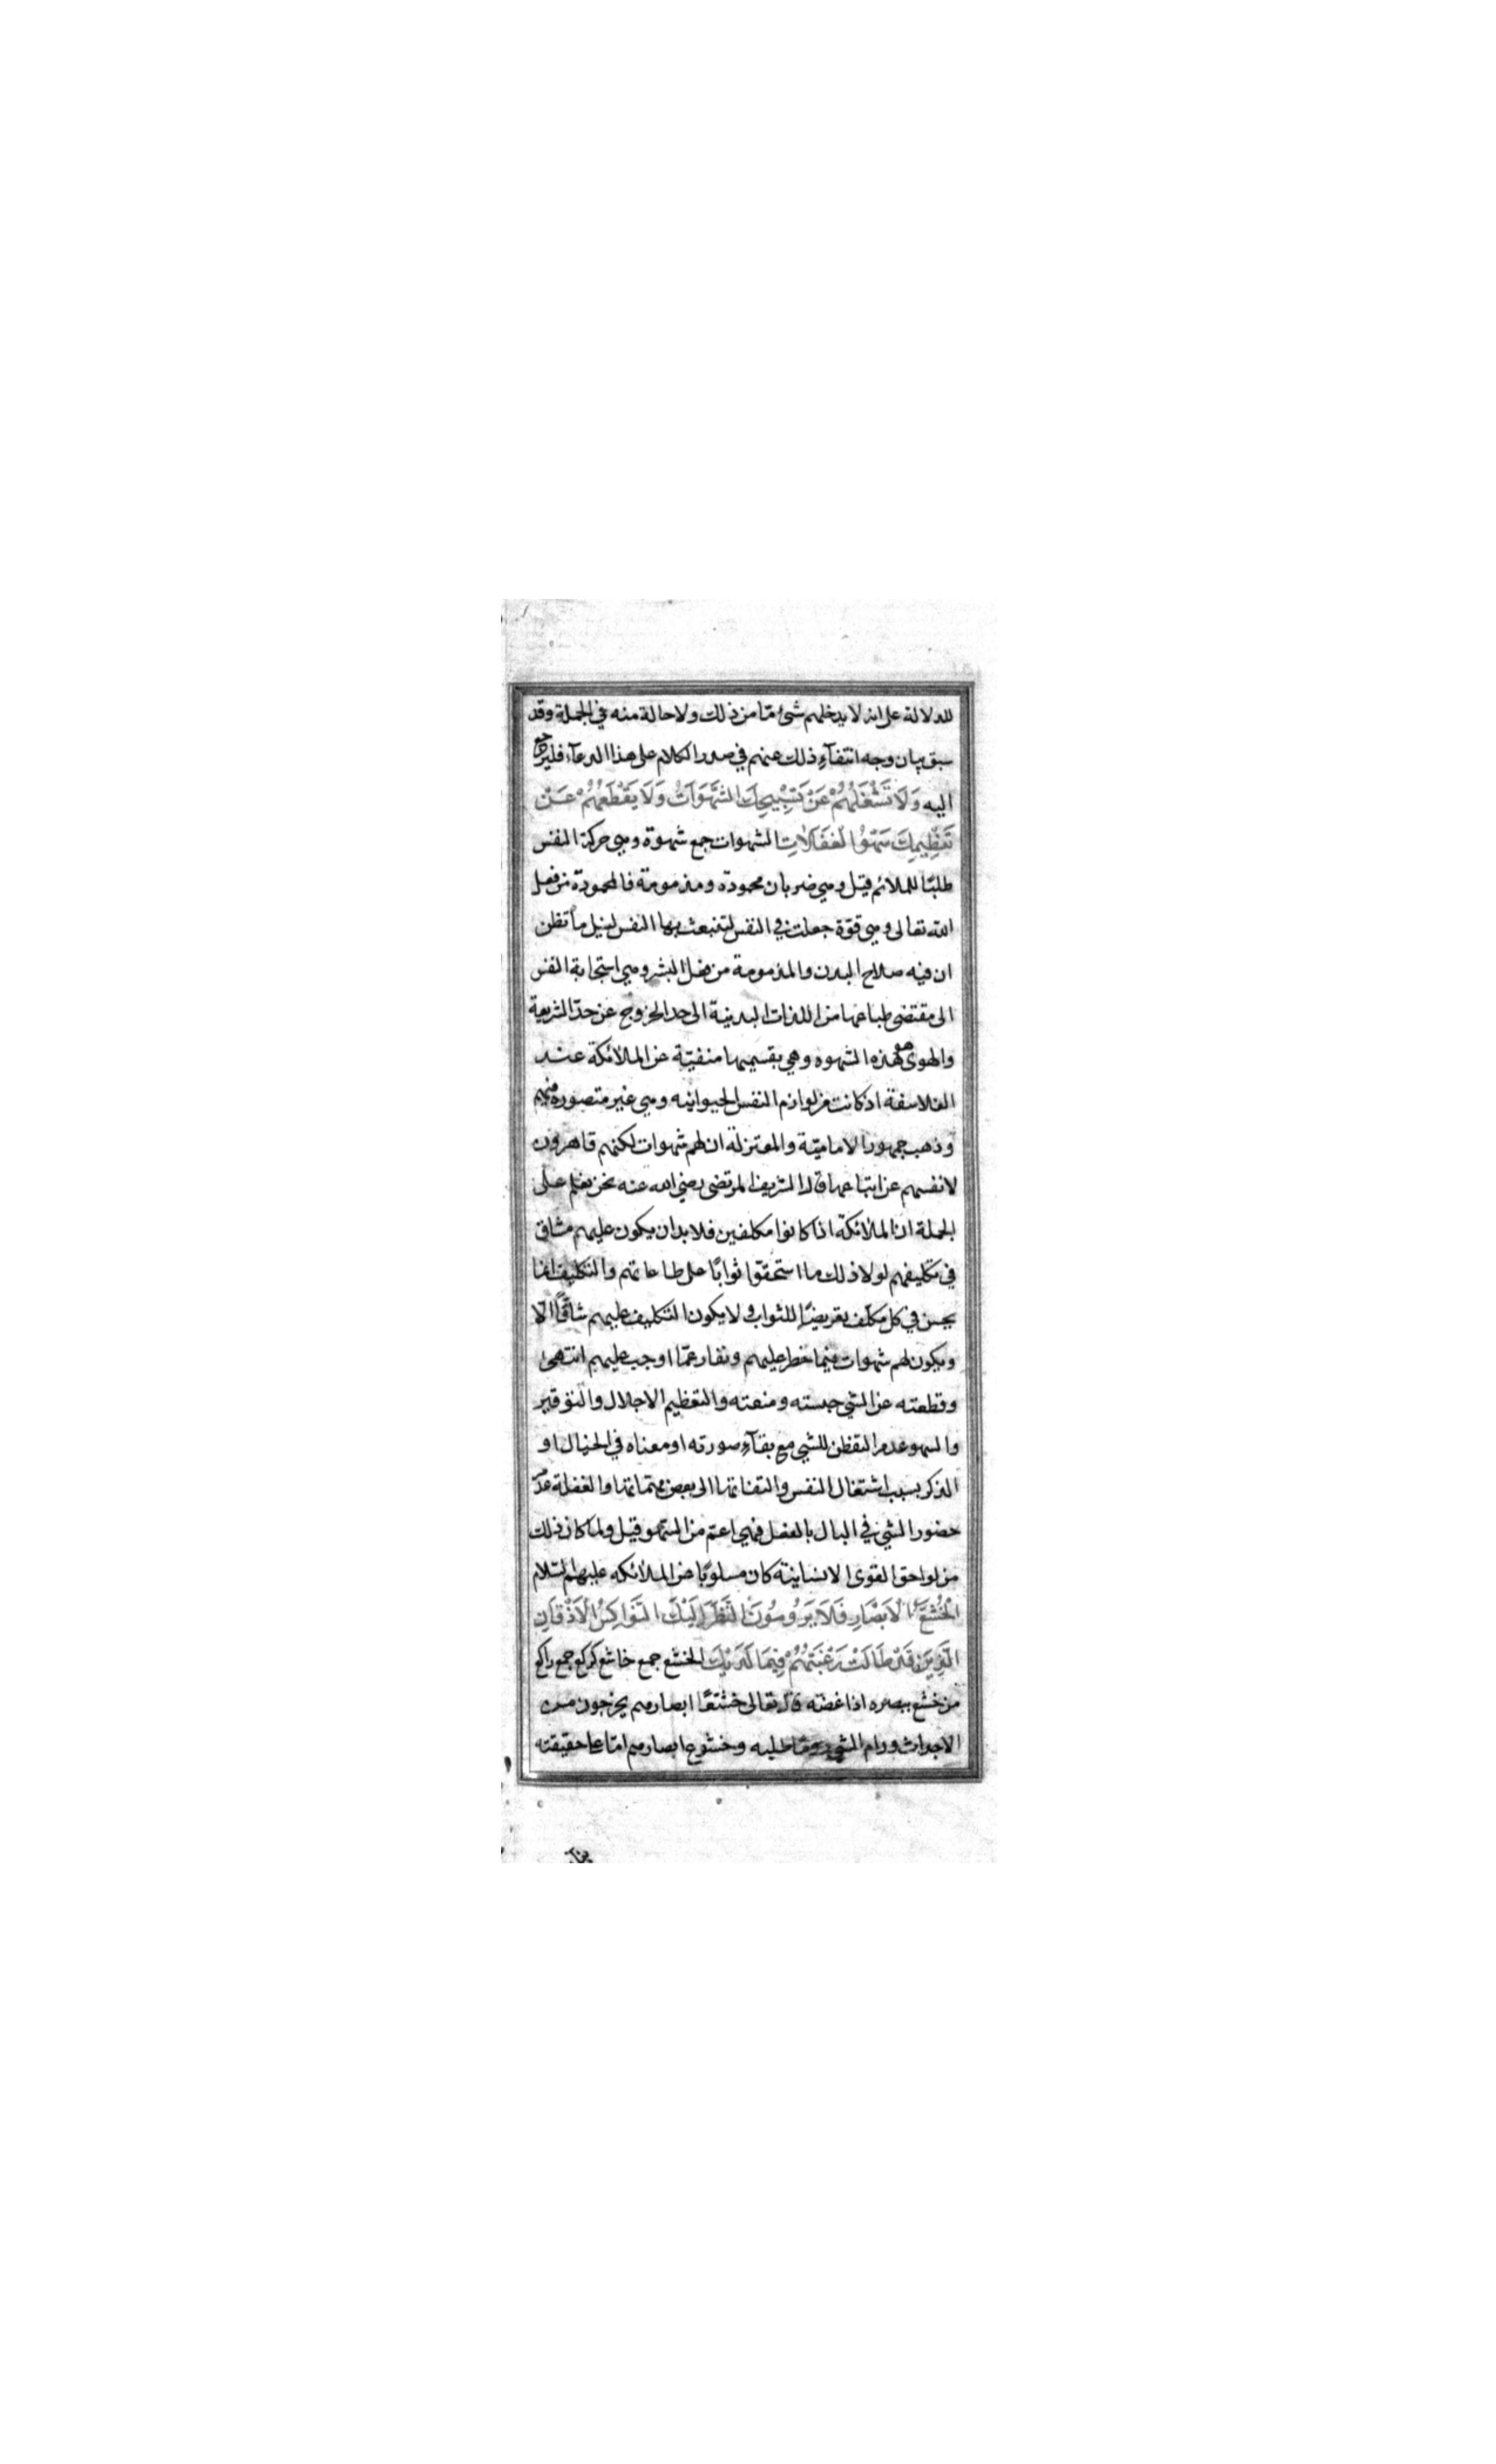 للدلالة على انه لا يدخلهم شئ مّا من ذلك ولا حالة منه في الجملة وقد
سبق بيان وجه انتفآء ذلك عنهم في صدر الكلام على هذا الدعآء فليرجع
اليه وَلَا تَشْغَلُهُمْ عَنْ تَسْبِيحِكَ الشَّهَوَاتُ وَلَا يَقْطَعُهُمْ عَنْ
تَعْظِيمِكَ سَهْوُ الْغَفَلَاتِ الشهوات جمع شهوة وهي حركة النفس
طلبًا للملائم قيل وهي ضربان محمودة ومذمومة فالمحمودة من فعل
الله تعالى وهي قوّة جعلت في النفس لتنبعث بها النفس لنيل ما تظن
ان فيه صلاح البدن والمذمومة من فعل البشر وهي استجابة النفس
الى مقتضى طباعها من اللذات البدنية الى حد الخروج عن حدّ الشريعة
والهوى هو هذه الشهوه وهي بقسميها منفيّة عن الملائكة عند
الفلاسفة اذ كانت من لوازم النفس الحيوانيه وهي غير متصوره فيهم
وذهب جمهور الاماميّة والمعتزلة ان لهم شهوات لكنهم قاهرون
لانفسهم عن اتباعها قال الشريف المرتضى رضي الله عنه نحن نعلم على
الجملة ان الملائكة اذا كانوا مكلفين فلا بد ان يكون عليهم مشاق
في تكليفهم لولا ذلك ما استحقوا ثوابًا على طاعاتهم والتكليف انما
يحسن في كل مكلف تعريضًا للثواب ولا يكون التكليف عليهم شاقًا الّا
ويكون لهم شهوات فيما خطر عليهم ونفار عمّا اوجب عليهم انتهى
وقطعته عن الشي حبسته ومنعته والتعظيم الاجلال والتوقير
والسهو عدم التفطن للشي مع بقآء صورته او معناه في الخيال او
الذكر بسبب اشتغال النفس والتفاتها الى بعض مهماتها والغفلة عدم
حضور الشي في البال بالفعل فهي اعم من السهو قيل ولما كان ذلك
من لواحق القوى الانسانية كان مسلوبًا عن الملائكه عليهم السلام
الْخُشَّعُ الْاَبْصَارِ فَلَا يَرُومُونَ النَّظَرَ اِلَيْكَ النَّوَاكِسُ الْاَذْقَانِ
الَّذِينَ قَدْ طَالَتْ رَغْبَتُهُمْ فِيمَا لَدَيْكَ الخشع جمع خاشع كركع جمع راكع
من خشع ببصره اذا غضه قال تعالى خشعًا ابصارهم يخرجون من
الاجداث ورام الشي طلبه وخشوع ابصارهم امّا على حقيقته